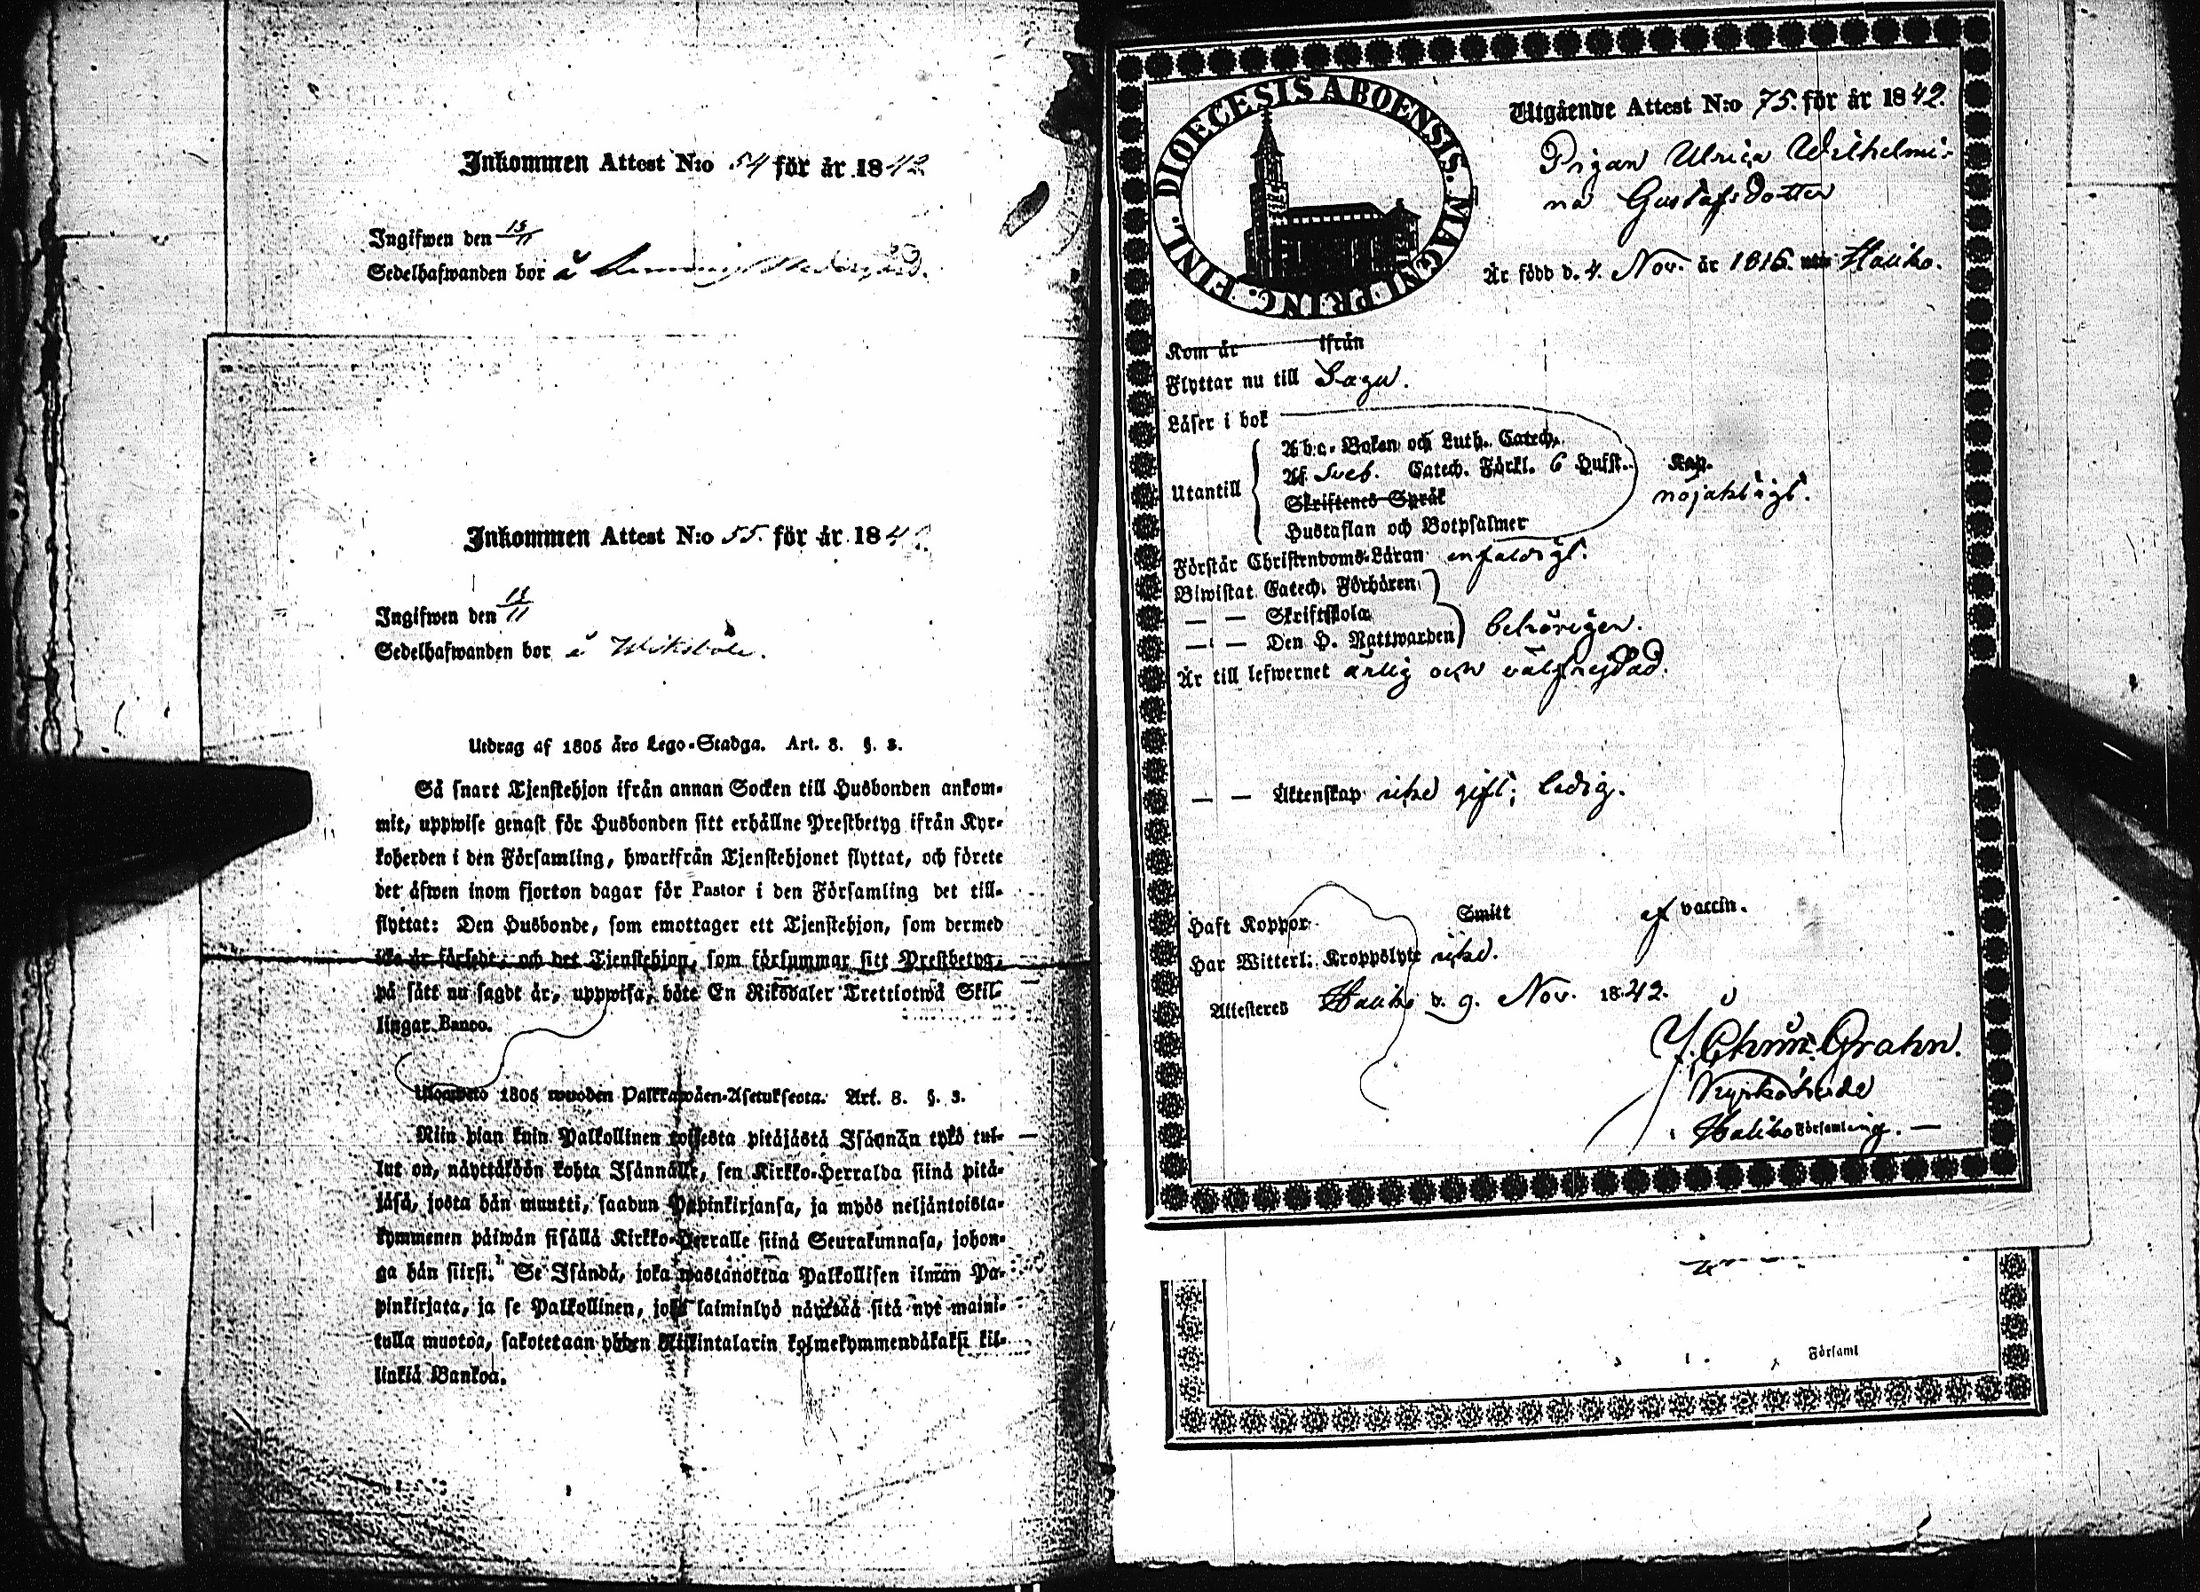 Inkommen Attest N:o 54 för år 1842
Ingifwen den 13/11
Sedelhafwanden bor å
Inkommen Attest N:o 55. för år 184
Ingifwen den 13/11
Sedelhafwanden bor å Wiksböle.
Utdrag af 1805 års Lego-Stadga. Art. 8. §. 3.
Så snart Tjenstehjon ifrån annan Socken till Husbonden ankom-
mit, uppwise genast för Husbonden sitt erhållne Prestbetyg ifrån Kyr-
koherden i den Församling, hwarifrån Tjenstehjonet flyttat, och förete
det äfwen inom fjorton dagar för Pastor i den Församling det till-
flyttat: Den Husbonde, som emottager ett Tjenstehjon, som dermed
icke är försedt; och det Tjenstehjon, som försummar sitt Prestbetyg,
på sätt nu sagdt är, uppwisa, böte En Riksdaler Trettiotwå Skil-
lingar Banco.
Ulosweto 1805 wuoden Palkkawäen-Asetuksesta. Art. 8. §. 3.
Niin pian kuin Palkollinen toisesta pitäjästä Isännän tykö tul-
lut on, näyttäköön kohta Isännälle, sen Kirkko-Herralda siinä pitä-
jäsä, josta hän muutti, saadun Papinkirjansa, ja myös neljäntoista-
kymmenen päiwän sisällä Kirkko-Herralle siinä Seurakunnasa, johon-
ga hän siirsi. Se Isändä, joka wastanottaa Palkollisen ilman Pa-
pinkirjata, ja se Palkollinen, joka laiminlyö näyttää sitä nyt maini-
tulla muotoa, sakotetaan yhden Riikintalarin kolmekymmendäkaksi kil-
linkiä Bankoa.
DIOECESIS ABOENSIS. MAGNI PRINC. FINL.
Utgående Attest N:o 75. för år 1842.
Pigan Ulrica Wilhelmi-
na Gustafsdotter
Är född d. 4. Nov. år 1816. uti Haliko.
Kom år ifrån
Flyttar nu till Sagu.
Läser i bok
Abc-Boken och Luth. Catech.
Utantill Af Sveb. Catech. Förkl. 6 Hufst. Kap.
Skriftenes Språk nöjaktigt.
Hustaflan och Botpsalmer
Förstår Christendoms-Läran enfaldigt.
Biwistat Catech. Förhören
— — Skriftskola
— — Den H. Nattwarden behörigen.
Är till lefwernet ärlig och välfrejdad.
— — Äktenskap icke gift; ledig.
Haft Koppor Smitt af vaccin.
Har Witterl. Kroppslyte icke.
Attesteres Haliko d. 9. Nov. 1842.
Grahn.
Kyrkoherde
i Haliko Församling. —
Församl